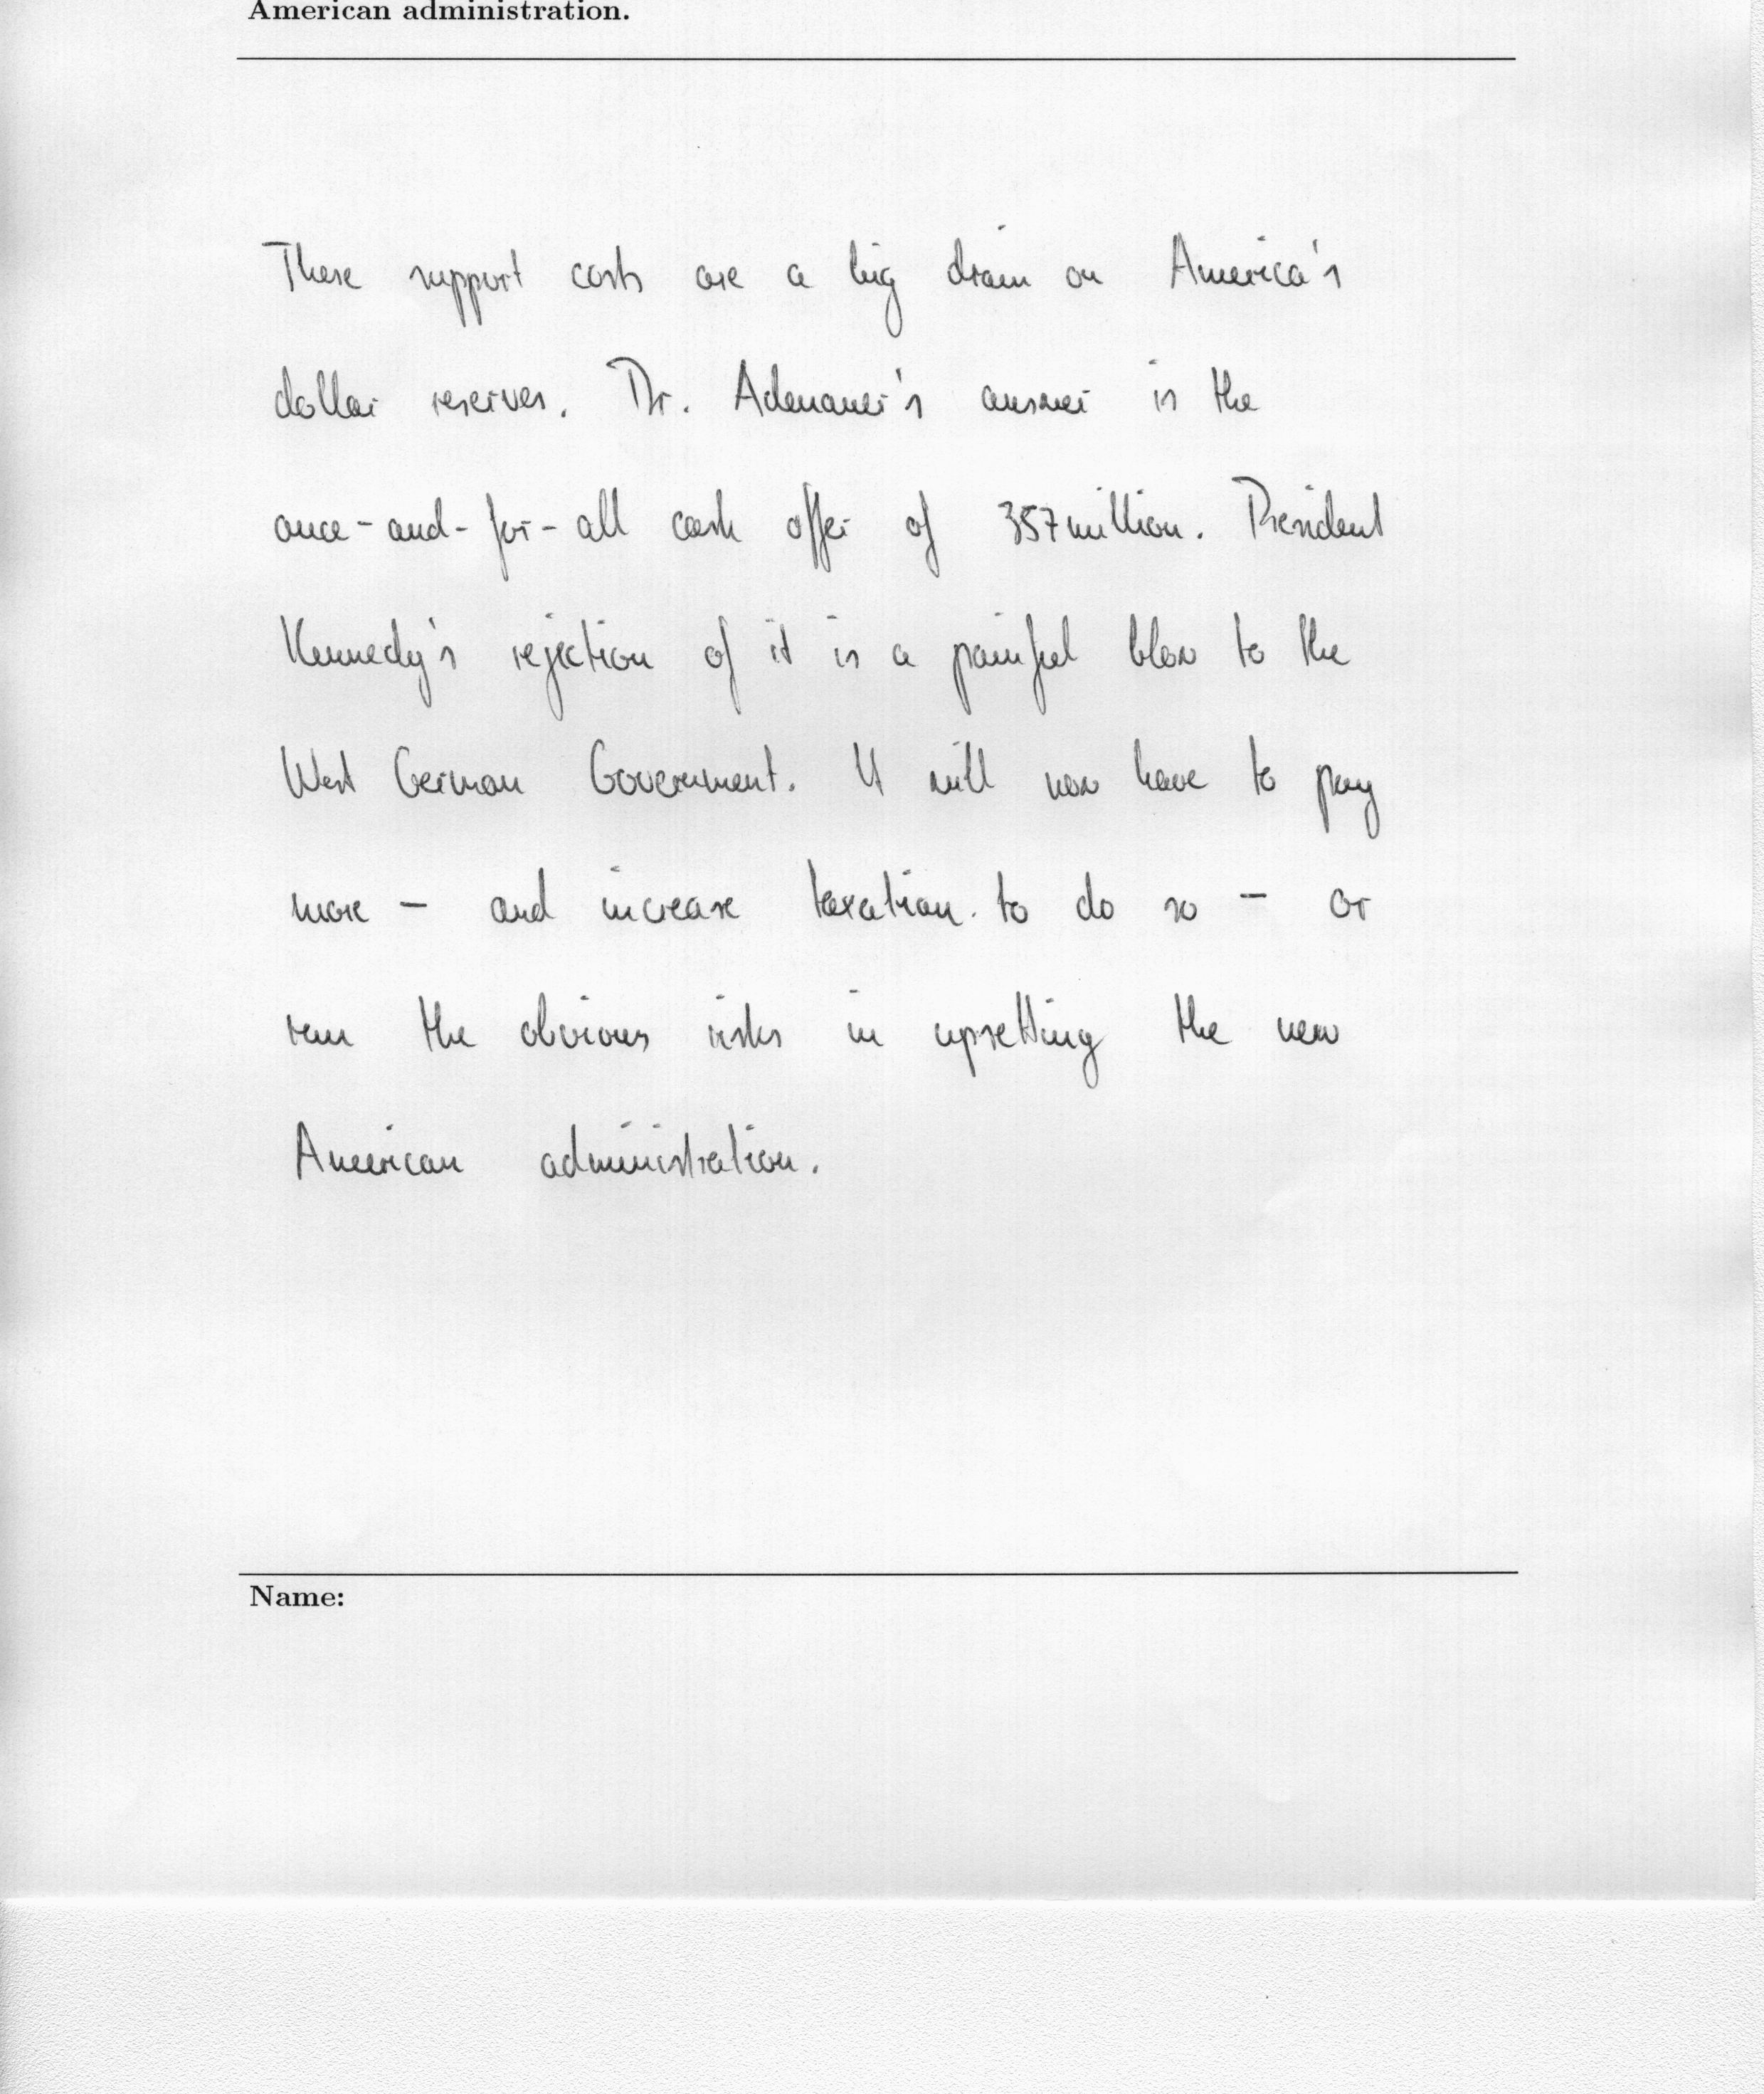 American administration.
These support costs are a big drain on America's
dollar reserves. Dr. Adenauer's answer is the
once-and-for-all cash offer of 357million. President
Kennedy's rejection of it is a painful blow to the
West German Government. It will now have to pay
more - and increase taxation to do so - or
run the obvious risks in upsetting the new
American administration.
Name: